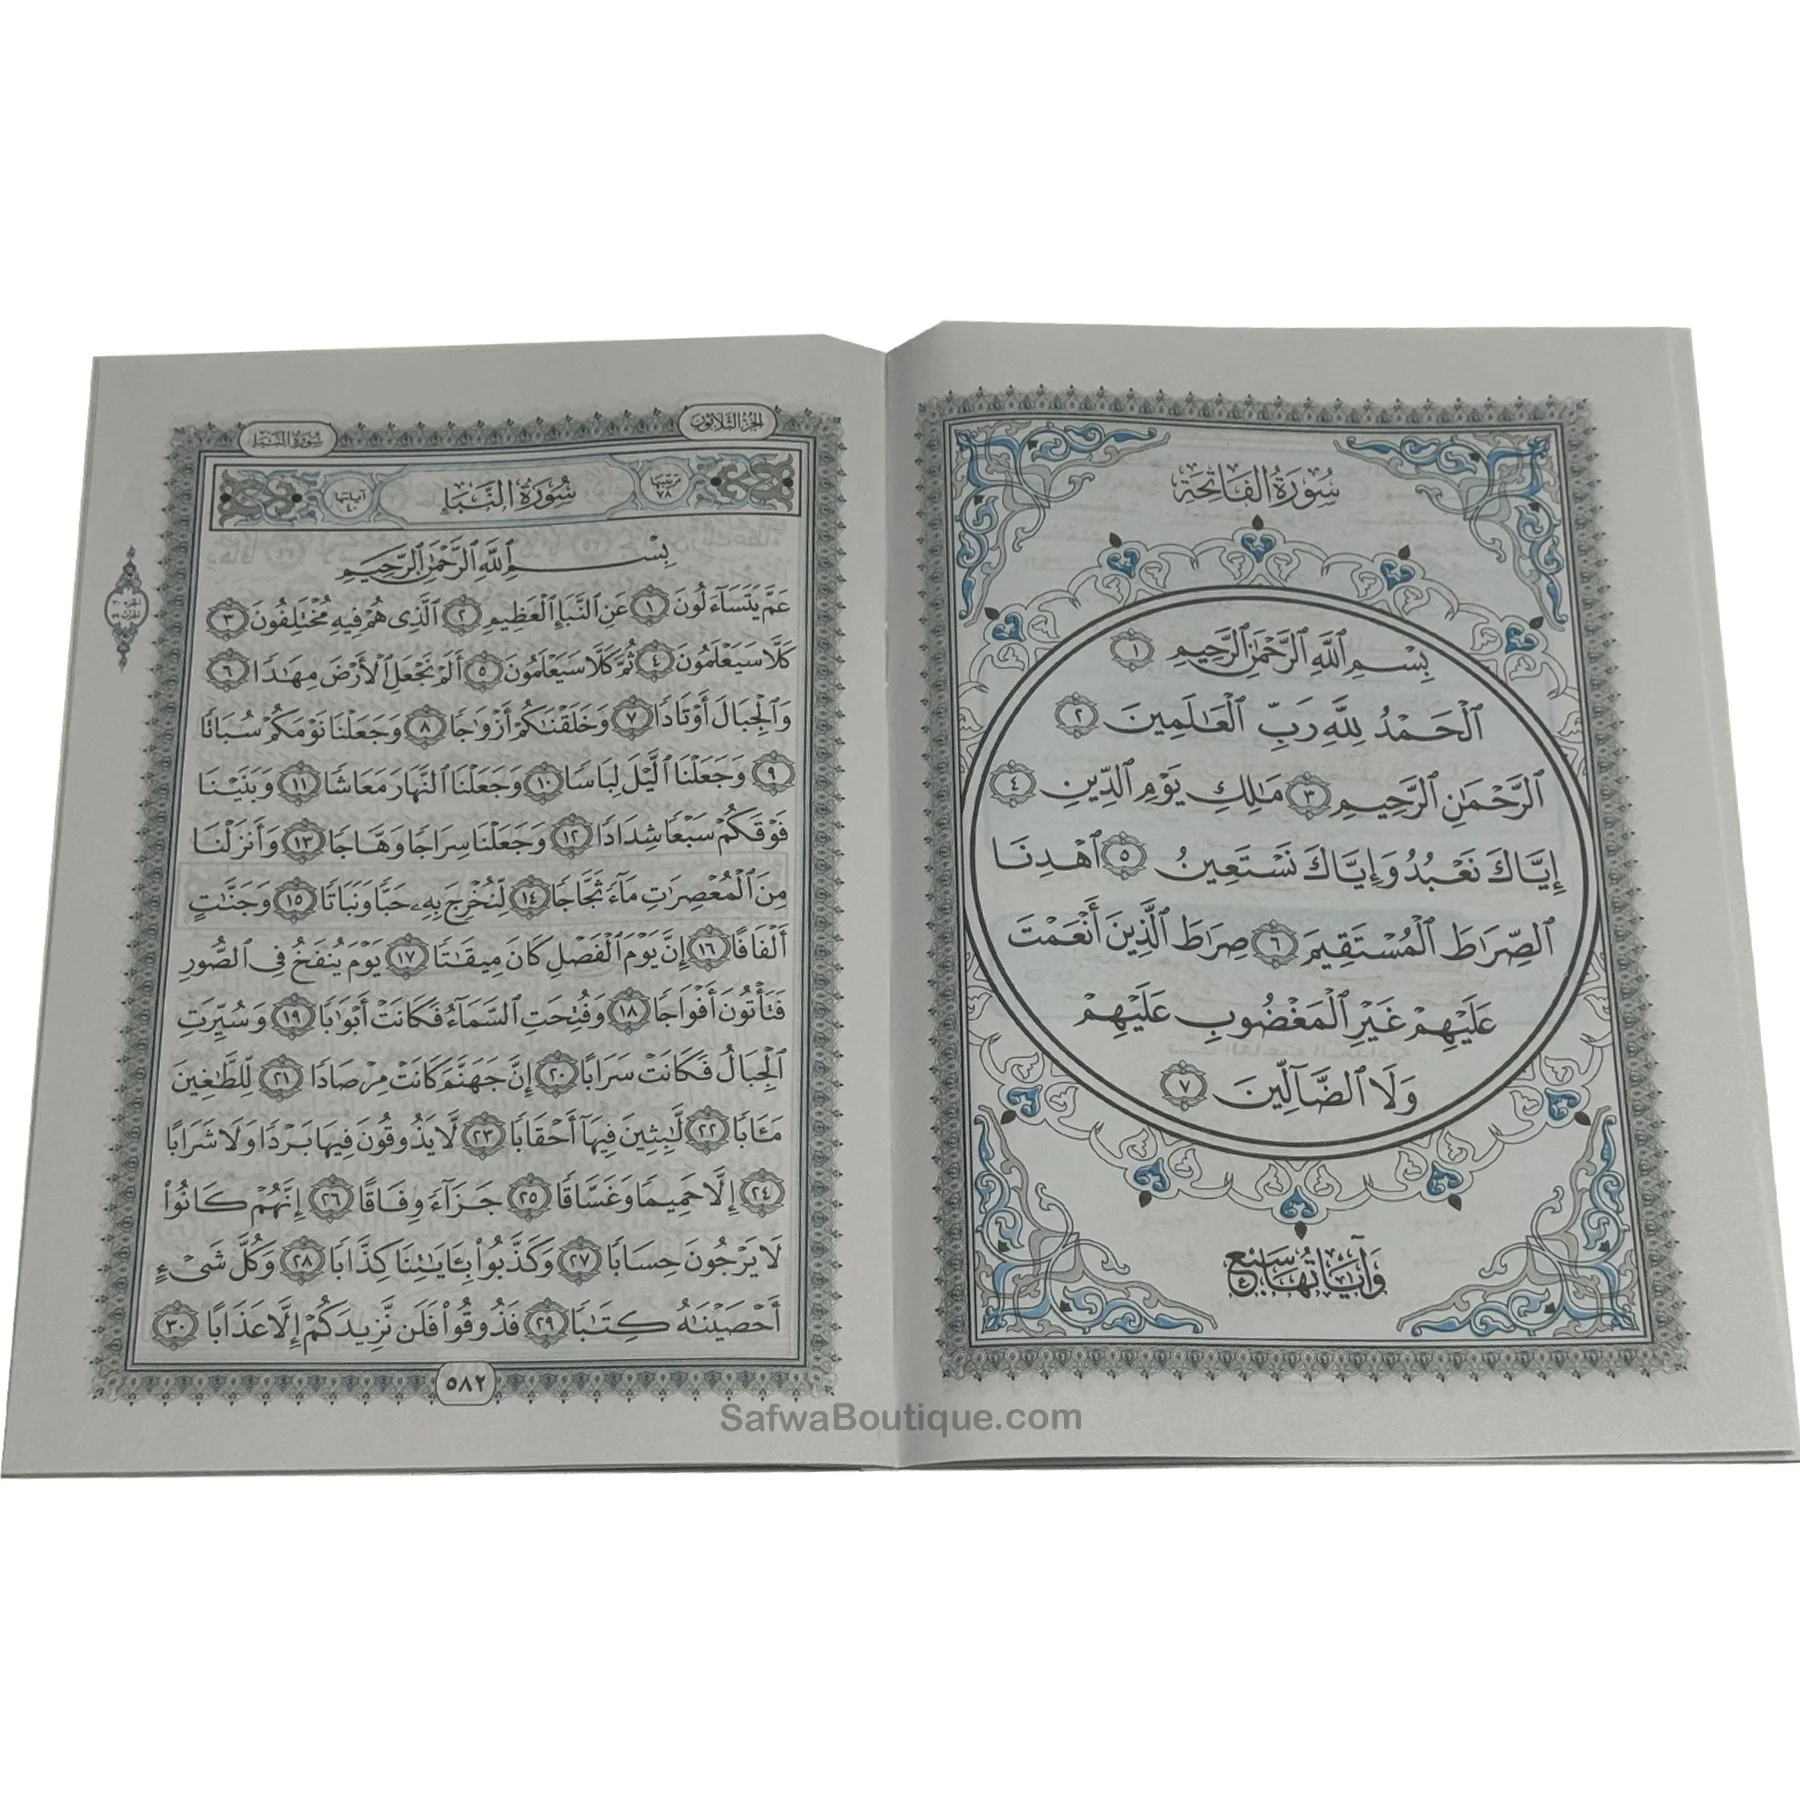 سُورَةُ الْفَاتِحَةِ
بِسْمِ ٱللَّهِ ٱلرَّحْمَٰنِ ٱلرَّحِيمِ ١
ٱلْحَمْدُ لِلَّهِ رَبِّ ٱلْعَٰلَمِينَ ٢
ٱلرَّحْمَٰنِ ٱلرَّحِيمِ ٣ مَٰلِكِ يَوْمِ ٱلدِّينِ ٤
إِيَّاكَ نَعْبُدُ وَإِيَّاكَ نَسْتَعِينُ ٥ ٱهْدِنَا
ٱلصِّرَٰطَ ٱلْمُسْتَقِيمَ ٦ صِرَٰطَ ٱلَّذِينَ أَنْعَمْتَ
عَلَيْهِمْ غَيْرِ ٱلْمَغْضُوبِ عَلَيْهِمْ
وَلَا ٱلضَّآلِّينَ ٧
وَآيَاتُهَا سَبْعٌ
الجزء الثلاثون
سورة النبإ
ترتيبها ٧٨
سُورَةُ النَّبَإِ
آياتها ٤٠
بِسْمِ ٱللَّهِ ٱلرَّحْمَٰنِ ٱلرَّحِيمِ
عَمَّ يَتَسَآءَلُونَ ١ عَنِ ٱلنَّبَإِ ٱلْعَظِيمِ ٢ ٱلَّذِى هُمْ فِيهِ مُخْتَلِفُونَ ٣
كَلَّا سَيَعْلَمُونَ ٤ ثُمَّ كَلَّا سَيَعْلَمُونَ ٥ أَلَمْ نَجْعَلِ ٱلْأَرْضَ مِهَٰدًا ٦
وَٱلْجِبَالَ أَوْتَادًا ٧ وَخَلَقْنَٰكُمْ أَزْوَٰجًا ٨ وَجَعَلْنَا نَوْمَكُمْ سُبَاتًا
٩ وَجَعَلْنَا ٱلَّيْلَ لِبَاسًا ١٠ وَجَعَلْنَا ٱلنَّهَارَ مَعَاشًا ١١ وَبَنَيْنَا
فَوْقَكُمْ سَبْعًا شِدَادًا ١٢ وَجَعَلْنَا سِرَاجًا وَهَّاجًا ١٣ وَأَنزَلْنَا
مِنَ ٱلْمُعْصِرَٰتِ مَآءً ثَجَّاجًا ١٤ لِّنُخْرِجَ بِهِۦ حَبًّا وَنَبَاتًا ١٥ وَجَنَّٰتٍ
أَلْفَافًا ١٦ إِنَّ يَوْمَ ٱلْفَصْلِ كَانَ مِيقَٰتًا ١٧ يَوْمَ يُنفَخُ فِى ٱلصُّورِ
فَتَأْتُونَ أَفْوَاجًا ١٨ وَفُتِحَتِ ٱلسَّمَآءُ فَكَانَتْ أَبْوَٰبًا ١٩ وَسُيِّرَتِ
ٱلْجِبَالُ فَكَانَتْ سَرَابًا ٢٠ إِنَّ جَهَنَّمَ كَانَتْ مِرْصَادًا ٢١ لِّلطَّٰغِينَ
مَـَٔابًا ٢٢ لَّٰبِثِينَ فِيهَآ أَحْقَابًا ٢٣ لَّا يَذُوقُونَ فِيهَا بَرْدًا وَلَا شَرَابًا
٢٤ إِلَّا حَمِيمًا وَغَسَّاقًا ٢٥ جَزَآءً وِفَاقًا ٢٦ إِنَّهُمْ كَانُوا۟
لَا يَرْجُونَ حِسَابًا ٢٧ وَكَذَّبُوا۟ بِـَٔايَٰتِنَا كِذَّابًا ٢٨ وَكُلَّ شَىْءٍ
أَحْصَيْنَٰهُ كِتَٰبًا ٢٩ فَذُوقُوا۟ فَلَن نَّزِيدَكُمْ إِلَّا عَذَابًا ٣٠
٥٨٢
SafwaBoutique.com